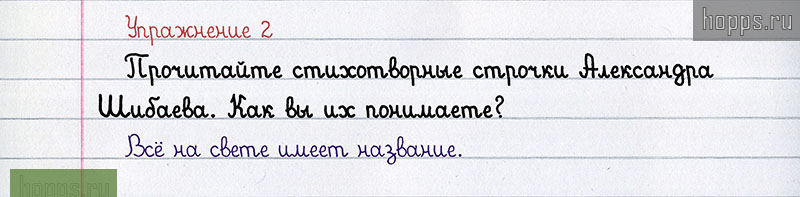 hopps.ru
Упражнение 2
Прочитайте стихотворные строчки Александра
Шибаева. Как вы их понимаете?
Всё на свете имеет название.
hopps.ru